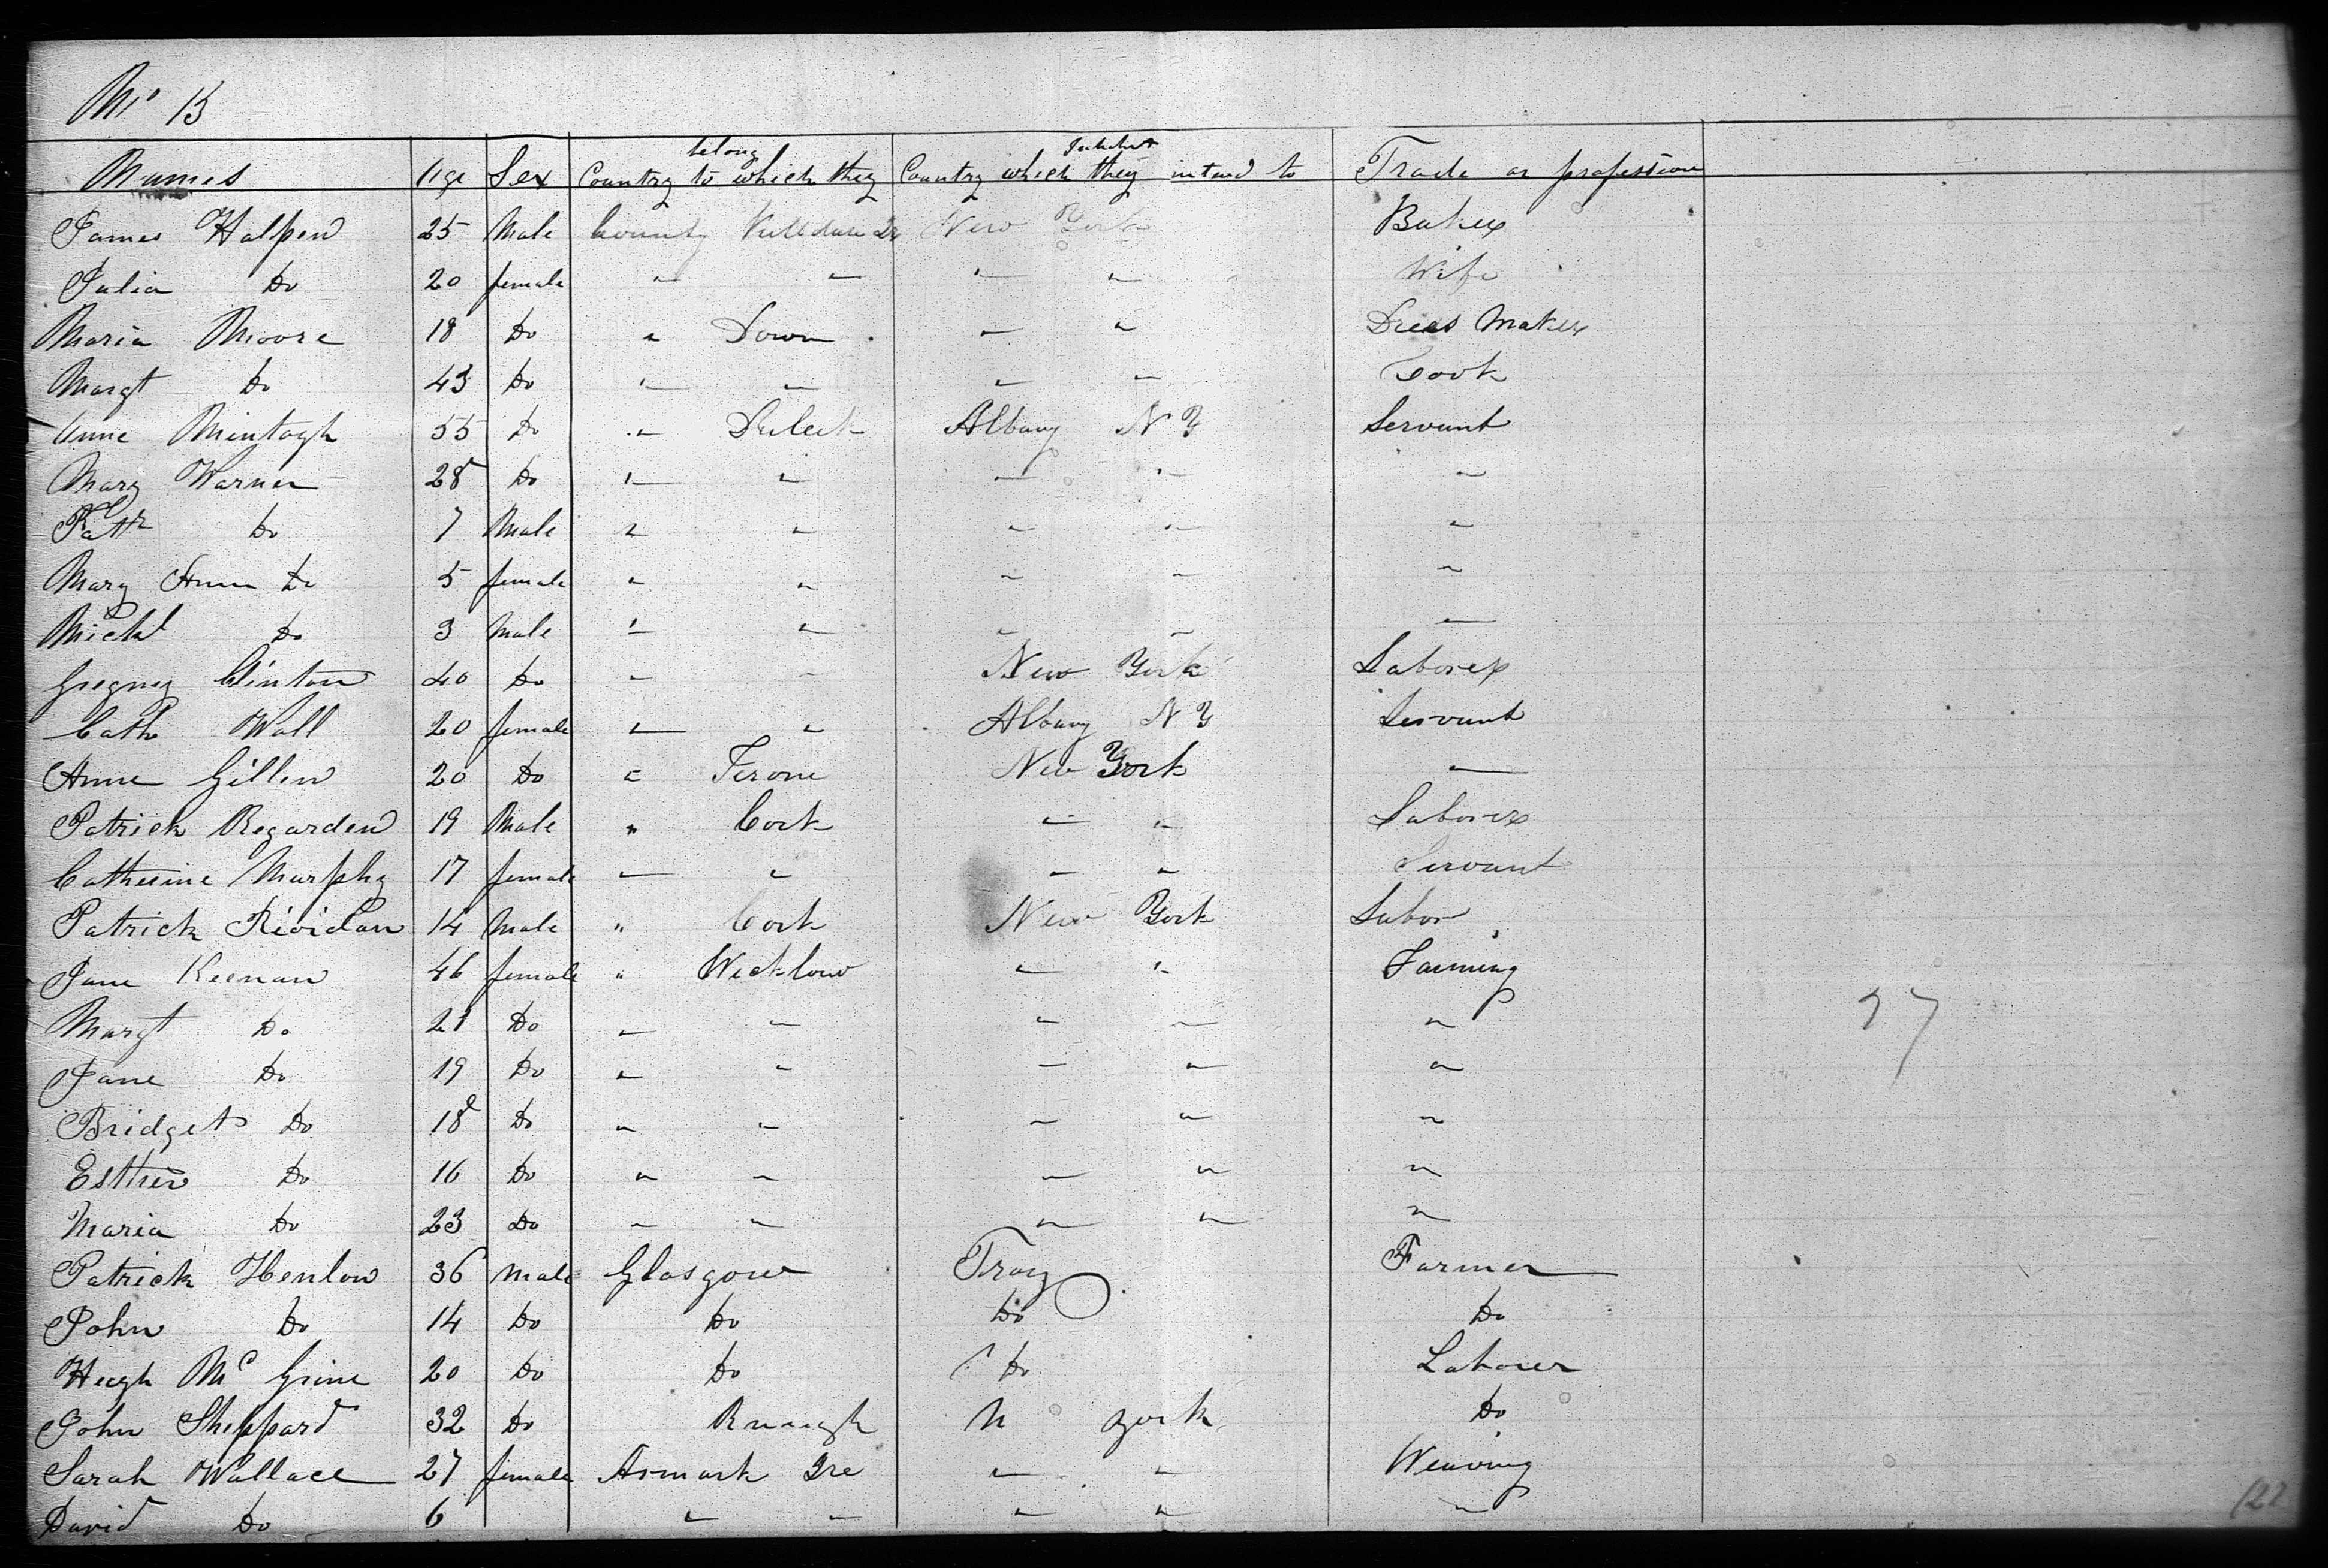 No 13
Names Age Sex Country to which they belong Country which they intend to Inhabit Trade or profession
James Halpen 25 Male County Killdare Ir New York Baker
Julia Do 20 female " " " " Wife
Maria Moore 18 Do " Down " " Dress Maker
Margt Do 43 Do " " " " Cook
Anne 55 Do " Duleek Albany N Y Servant
Mary Warner 28 Do " " " " "
Patk Do 7 Male " " " " "
Mary Ann Do 5 female " " " " "
Michl Do 3 Male " " " " "
Gregney Clinton 40 Do " " New York Laborer
Cath Wall 20 female " " Albany N Y Servant
Anne Gillen 20 Do " Terone New York "
Patrick Regarden 19 Male " Cork " " Laborer
Catherine Murphy 17 female " " " " Servant
Patrick Rioidan 14 Male " Cork New York Labor
Jane Keenan 46 female " Wicklow " " Farming
Margt Do 21 Do " " " " "
Jane Do 19 Do " " " " "
Bridget Do 18 Do " " " " "
Esther Do 16 Do " " " " "
Maria Do 23 Do " " " " "
Patrick Henlow 36 Male Glasgow Troy Farmer
John Do 14 Do Do Do Do
Hugh Mc Grine 20 Do Do Do Laborer
John Sheppard 32 Do N york Do
Sarah Wallace 27 female Armark Ire " " Weaving
David Do 6 " " " " "